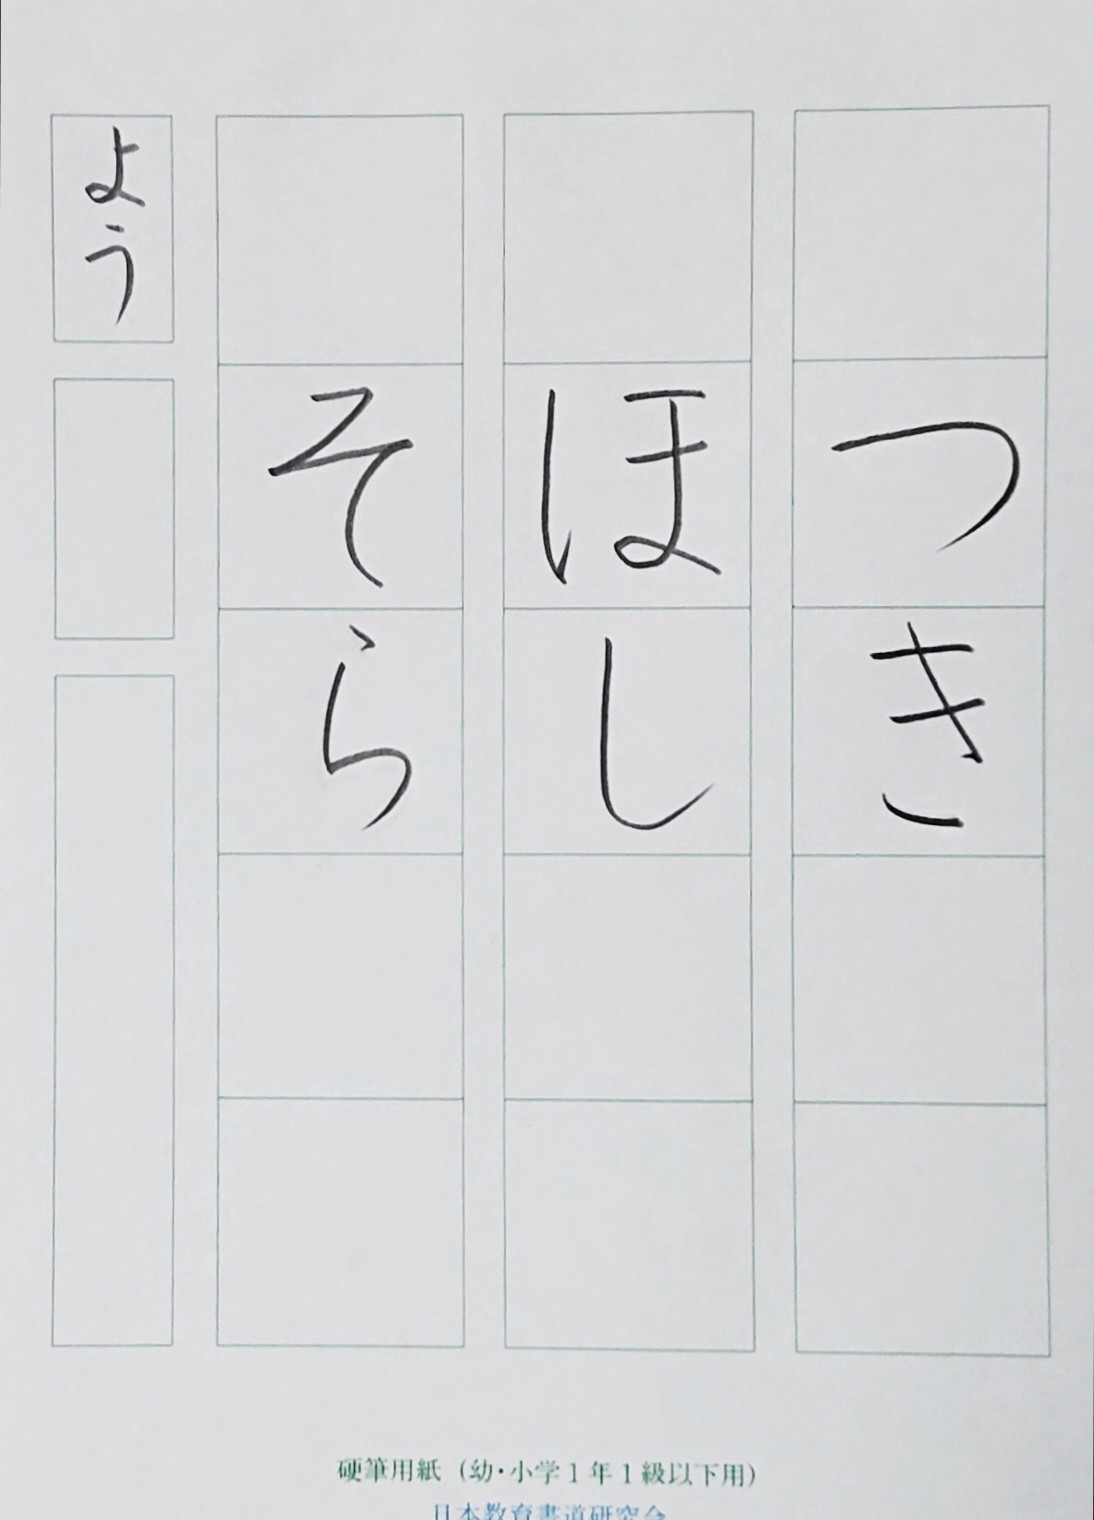 つき
ほし
そら
よう
硬筆用紙（幼・小学1年1級以下用）
日本教育書道研究会